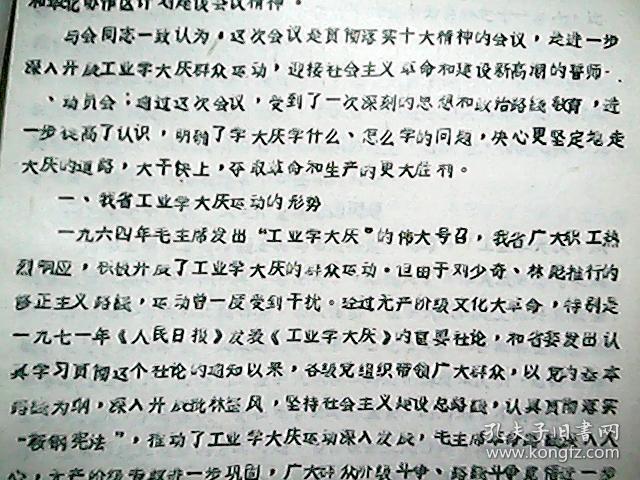 和华北协作区计划建设会议精神。
与会同志一致认为，这次会议是贯彻落实十大精神的会议，是进一步
深入开展工业学大庆群众运动，迎接社会主义革命和建设新高潮的誓师
、动员会；通过这次会议，受到了一次深刻的思想和政治路线教育，进
一步提高了认识，明确了学大庆学什么、怎么学的问题，决心更坚定地走
大庆的道路，大干快上，夺取革命和生产的更大胜利。
一、我省工业学大庆运动的形势
一九六四年毛主席发出“工业学大庆”的伟大号召，我省广大职工热
烈响应，积极开展了工业学大庆的群众运动。但由于刘少奇、林彪推行的
修正主义路线，运动曾一度受到干扰。经过无产阶级文化大革命，特别是
一九七一年《人民日报》发表《工业学大庆》的重要社论，和省委发出认
真学习贯彻这个社论的通知以来，各级党组织带领广大群众，以党的基本
路线为纲，深入开展批林整风，坚持社会主义建设总路线，认真贯彻落实
“鞍钢宪法”，推动了工业学大庆运动深入发展，毛主席革命路线深入人
心，无产阶级专政进一步巩固，广大群众阶级斗争、路线斗争觉悟进一步
孔夫子旧书网
www.kongfz.com